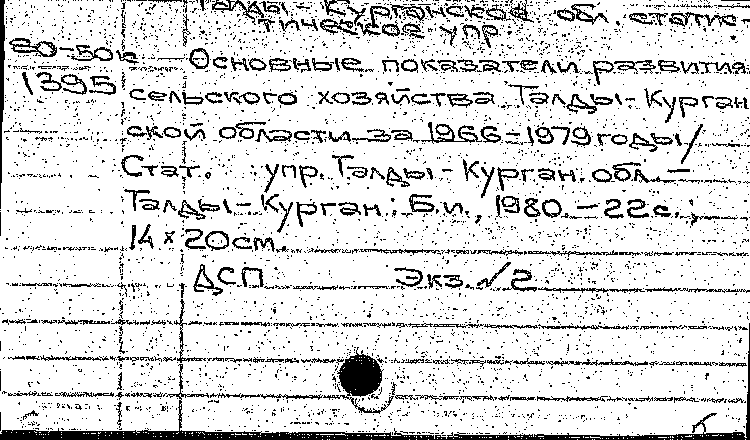 Талды-Курганское обл. статис-
тическое упр.
80-50к Основные показатели развития
1395 сельского хозяйства Талды-Курган
ской области за 1966-1979 годы/
Стат. упр. Талды-Курган. обл. —
Талды-Курган: Б.и., 1980. — 22 с.;
14 × 20 см.
ДСП Экз. № 2